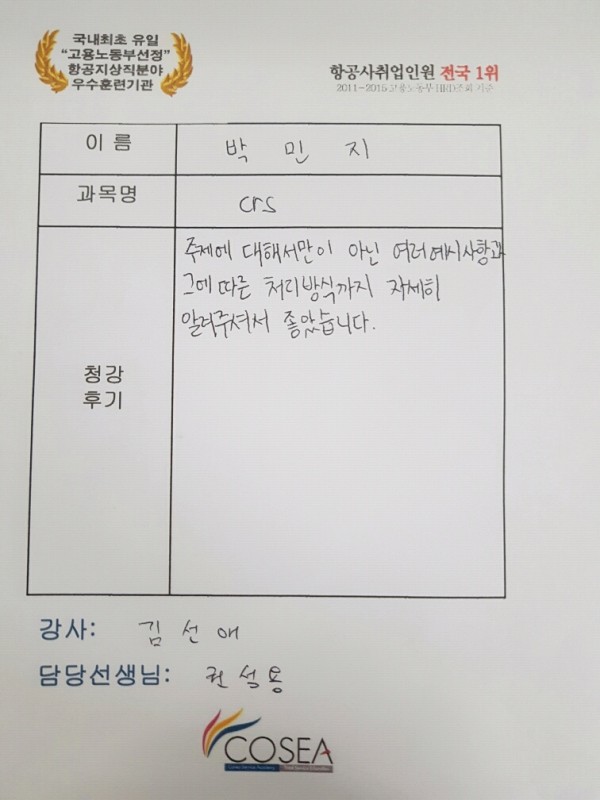 국내최초 유일
“고용노동부선정”
항공지상직분야
우수훈련기관
항공사취업인원 전국 1위
2011~2015 고용노동부 HRD조회 기준
이 름
박 민 지
과목명
crs
청강
후기
주제에 대해서만이 아닌 여러예시사항과
그에따른 처리방식까지 자세히
알려주셔서 좋았습니다.
강사: 김 선 애
담당선생님: 권 석 용
COSEA